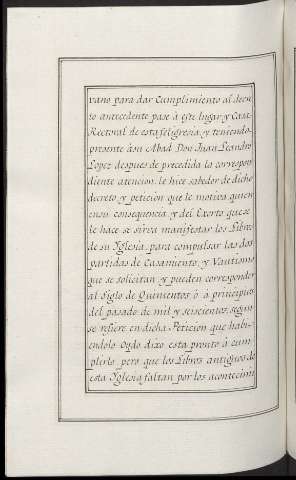 vano para dar Cumplimiento al decre
to antecedente pase à este lugar y Casa
Rectoral de esta feligresia, y teniendo
presente à su Abad Don Juan Leandro
Lopez despues de precedida la correspon
diente atencion, le hice sabedor de dicho
decreto y peticion que le motiva quien
en su consequencia y del Exorto que se
le hace se sirva manifestar los Libros
de su Yglesia, para compulsar las dos
partidas de Casamiento, y Vautismo
que se solicitan y pueden corresponder
al siglo de Quinientos ò à principios
del pasado de mil y seiscientos, segun
se refiere en dicha Peticion que habi-
endolo Oydo dixo esta pronto à cum-
plirlo, pero que los Libros antiguos de
esta Yglesia faltan por los acontecimi